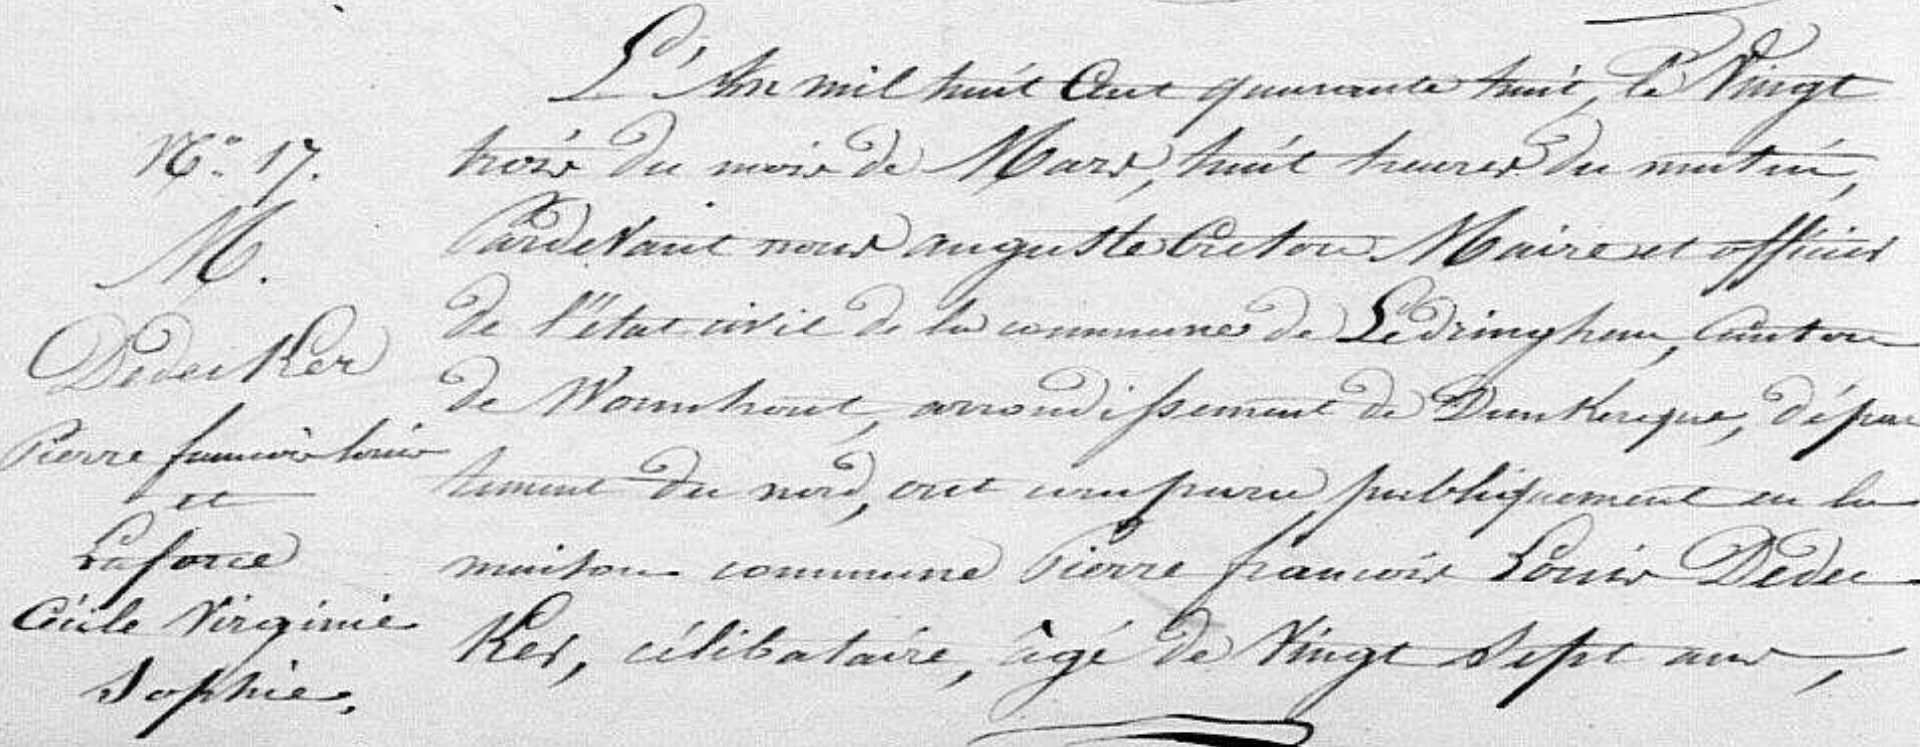 N.° 17.
M.
Dedecker
Pierre francois louis
et
Laforce
Cécile Virginie
Sophie.
L'An mil huit Cent quarante huit, le Vingt
trois du mois de Mars, huit heures du matin,
Pardevant nous auguste Creton Maire et officier
de l'état civil de la commune de Lédringhem, Canton
de Wormhout, arrondissement de Dunkerque, dépar
tement du nord, ont comparu publiquement en la
maison commune Pierre francois Louis Dedec
Ker, célibataire, âgé de Vingt Sept ans,